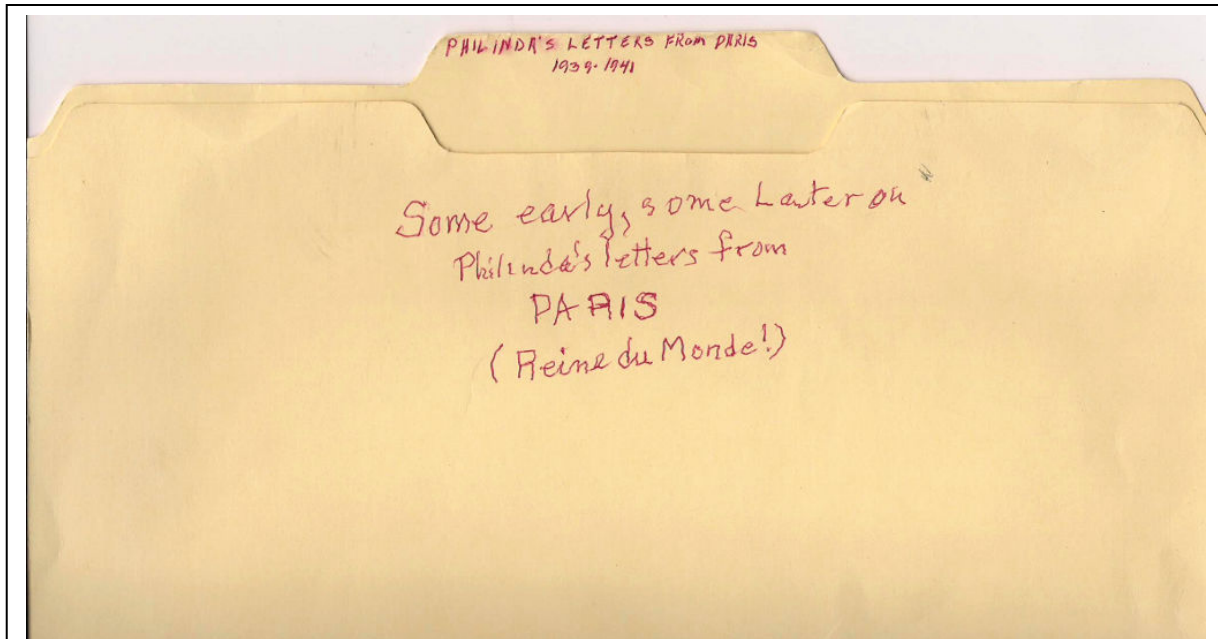 PHILINDA'S LETTERS FROM PARIS
1939-1941
Some early, some Later on
Philinda's letters from
PARIS
(Reine du Monde!)